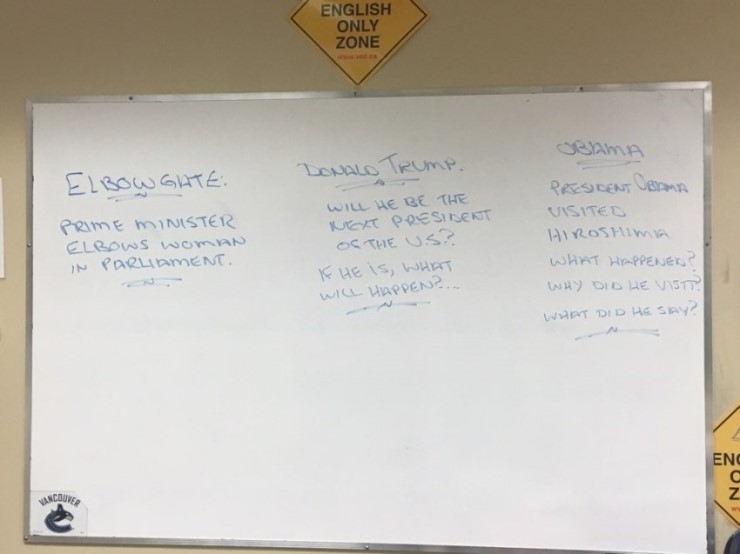 ENGLISH
ONLY
ZONE
ELBOWGATE:
PRIME MINISTER
ELBOWS WOMAN
IN PARLIAMENT.
DONALD TRUMP.
WILL HE BE THE
NEXT PRESIDENT
OF THE U.S.?
IF HE IS, WHAT
WILL HAPPEN?...
OBAMA
PRESIDENT OBAMA
VISITED
HIROSHIMA
WHAT HAPPENED?
WHY DID HE VISIT?
WHAT DID HE SAY?
VANCOUVER
ENG
O
Z